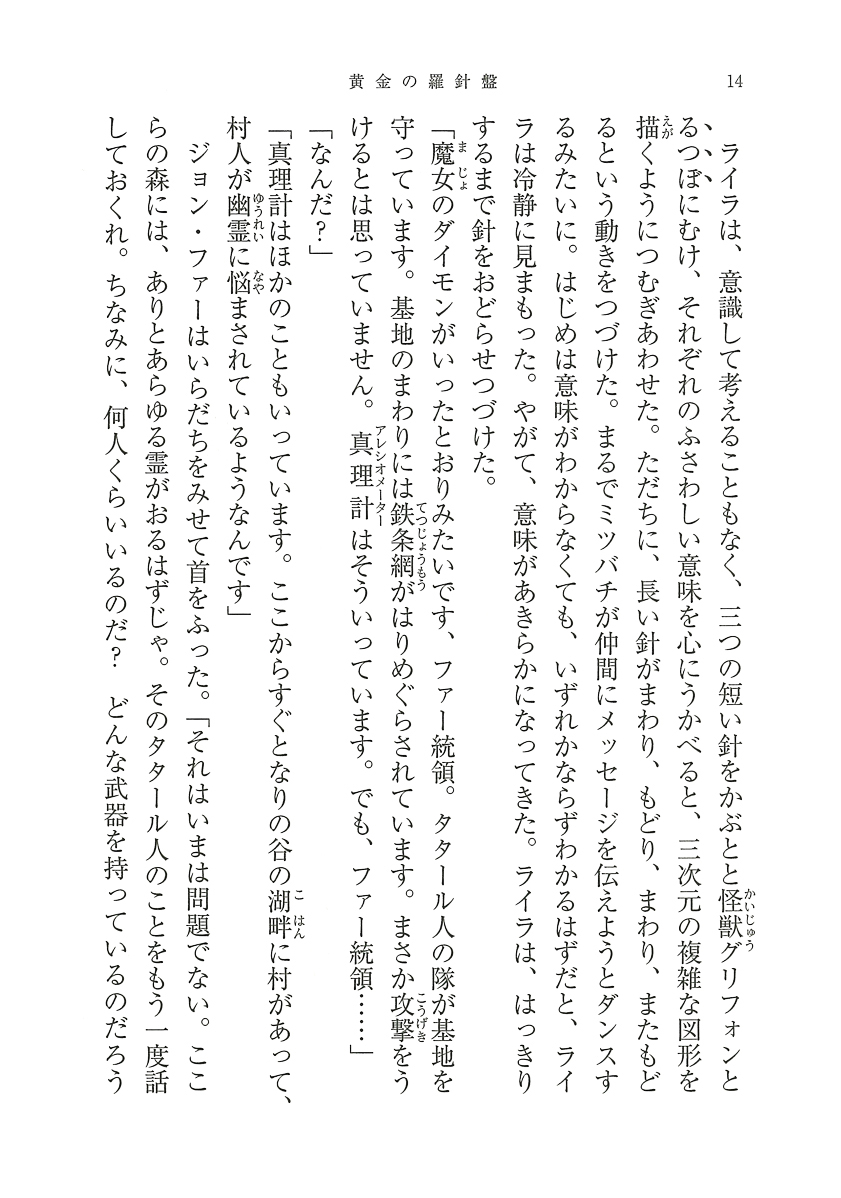 黄金の羅針盤
14
ライラは、意識して考えることもなく、三つの短い針をかぶとと怪獣グリフォンと
るつぼにむけ、それぞれのふさわしい意味を心にうかべると、三次元の複雑な図形を
描くようにつむぎあわせた。ただちに、長い針がまわり、もどり、まわり、またもど
るという動きをつづけた。まるでミツバチが仲間にメッセージを伝えようとダンスす
るみたいに。はじめは意味がわからなくても、いずれかならずわかるはずだと、ライ
ラは冷静に見まもった。やがて、意味があきらかになってきた。ライラは、はっきり
するまで針をおどらせつづけた。
「魔女のダイモンがいったとおりみたいです、ファー統領。タタール人の隊が基地を
守っています。基地のまわりには鉄条網がはりめぐらされています。まさか攻撃をう
けるとは思っていません。真理計はそういっています。でも、ファー統領……」
「なんだ?」
「真理計はほかのこともいっています。ここからすぐとなりの谷の湖畔に村があって、
村人が幽霊に悩まされているようなんです」
ジョン・ファーはいらだちをみせて首をふった。「それはいまは問題でない。ここ
らの森には、ありとあらゆる霊がおるはずじゃ。そのタタール人のことをもう一度話
しておくれ。ちなみに、何人くらいいるのだ? どんな武器を持っているのだろう